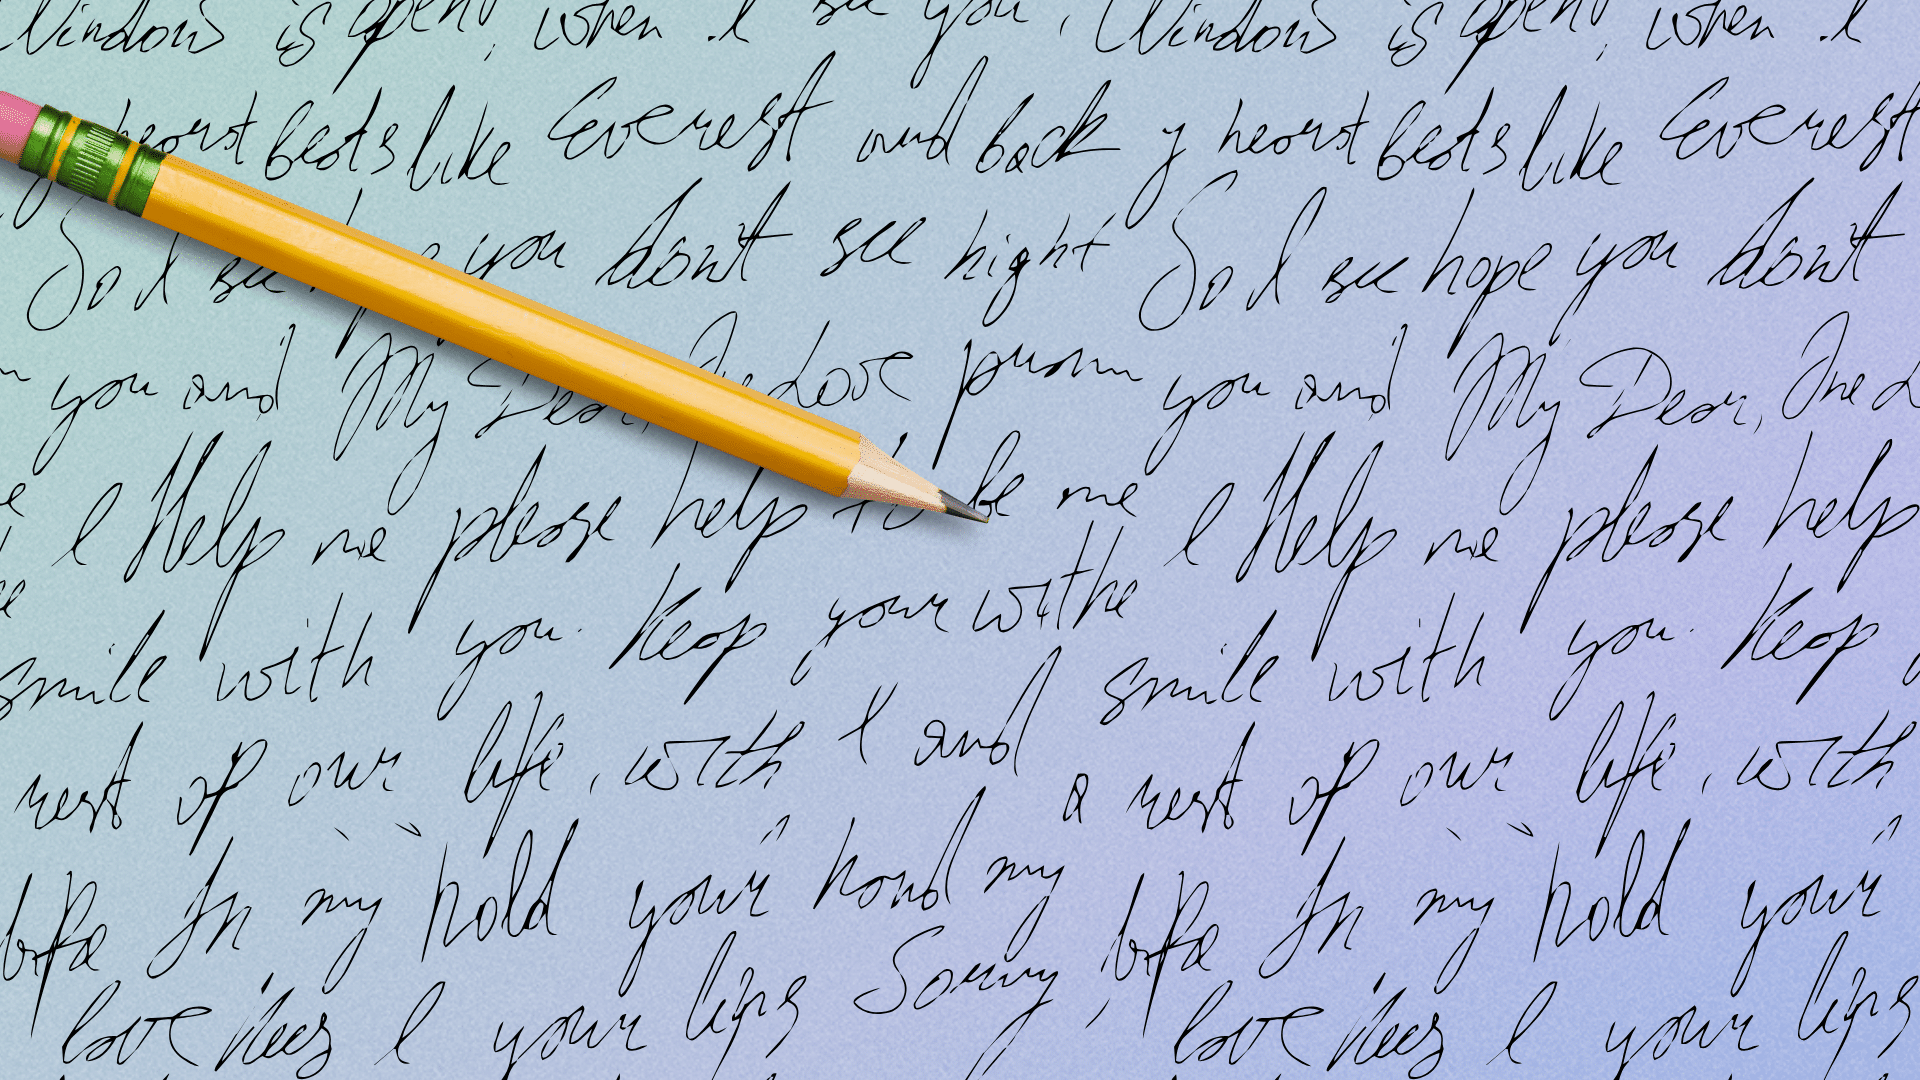 Windows is open, when I see you, Windows is open, when I
heart beats like Everest and back y heart beats like Everest
So I see hope you don't see night So I see hope you don't
you and My Dear, One Love prom you and My Dear, One L
I Help me please help to be me I Help me please help
smile with you. Keep your withe smile with you. Keep
rest of our life, with I and a rest of our life, with
In my hold your hand my In my hold your
love I your lips Sorry, love I your lips